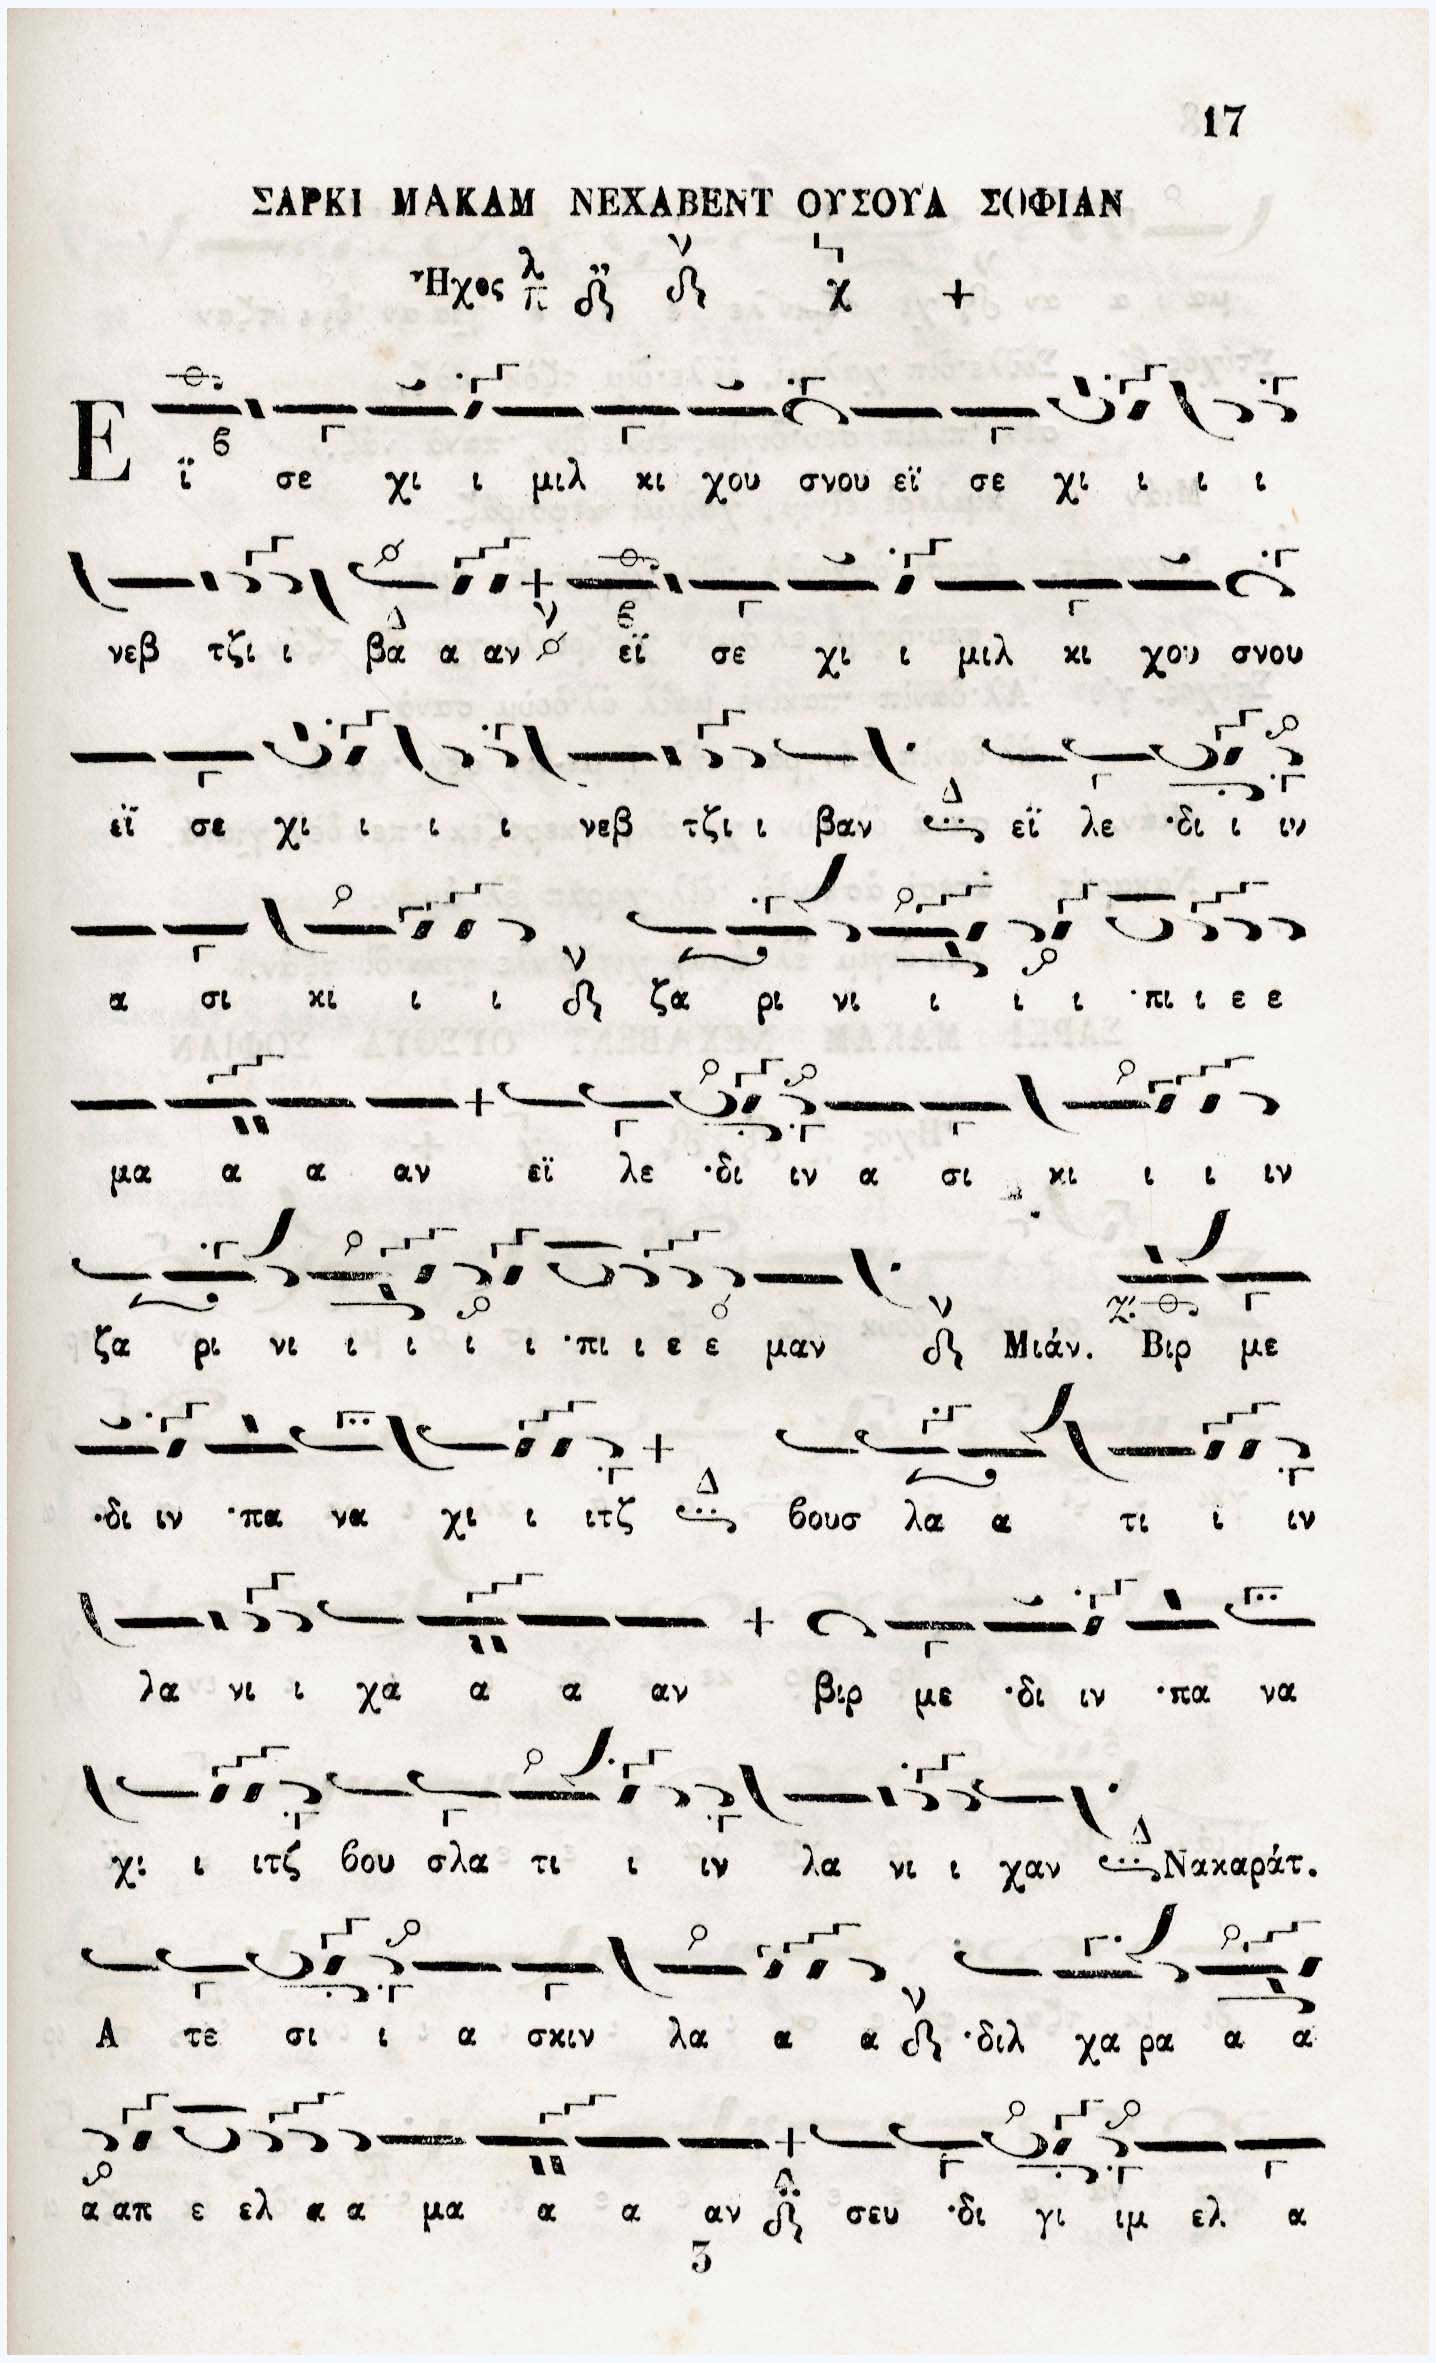 17
ΣΑΡΚΙ ΜΑΚΑΜ ΝΕΧΑΒΕΝΤ ΟΥΣΟΥΛ ΣΟΦΙΑΝ
Ἦχος λ π
Ε ϊ σε χι ι μιλ κι χου σνου εϊ σε χι ι ι ι
νεβ τζι ι βα α αν εϊ σε χι ι μιλ κι χου σνου
εϊ σε χι ι ι ι νεβ τζι ι βαν εϊ λε ·δι ι ιν
α σι κι ι ι ζα ρι νι ι ι ι ·πι ι ε ε
μα α α αν εϊ λε ·δι ιν α σι κι ι ι ιν
ζα ρι νι ι ι ι ι ·πι ι ε ε μαν Μιάν. Βιρ με
·δι ιν ·πα να χι ι ιτζ βουσ λα α τι ι ιν
λα νι ι χα α α αν βιρ με ·δι ιν ·πα να
χι ι ιτζ βου σλα τι ι ιν λα νι ι χαν Νακαράτ.
Α τε σι ι α σκιν λα α α ·διλ χα ρα α α
α απ ε ελ α α μα α α αν σευ ·δι γι ιμ ελ α
3